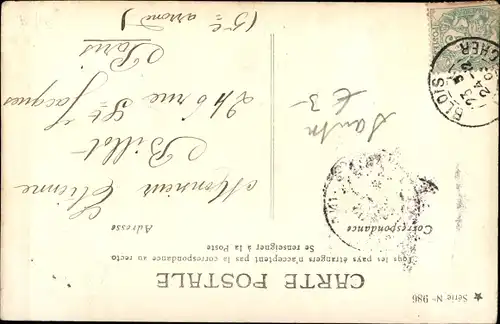 ★ Série Nº 986
CARTE POSTALE
Tous les pays étrangers n'acceptent pas la correspondance au recto
Se renseigner à la Poste
Correspondance
Adresse
Monsieur Etienne
Billot
246 rue St Jacques
Paris
(5e arrond)
£3-
BLOIS
CHER